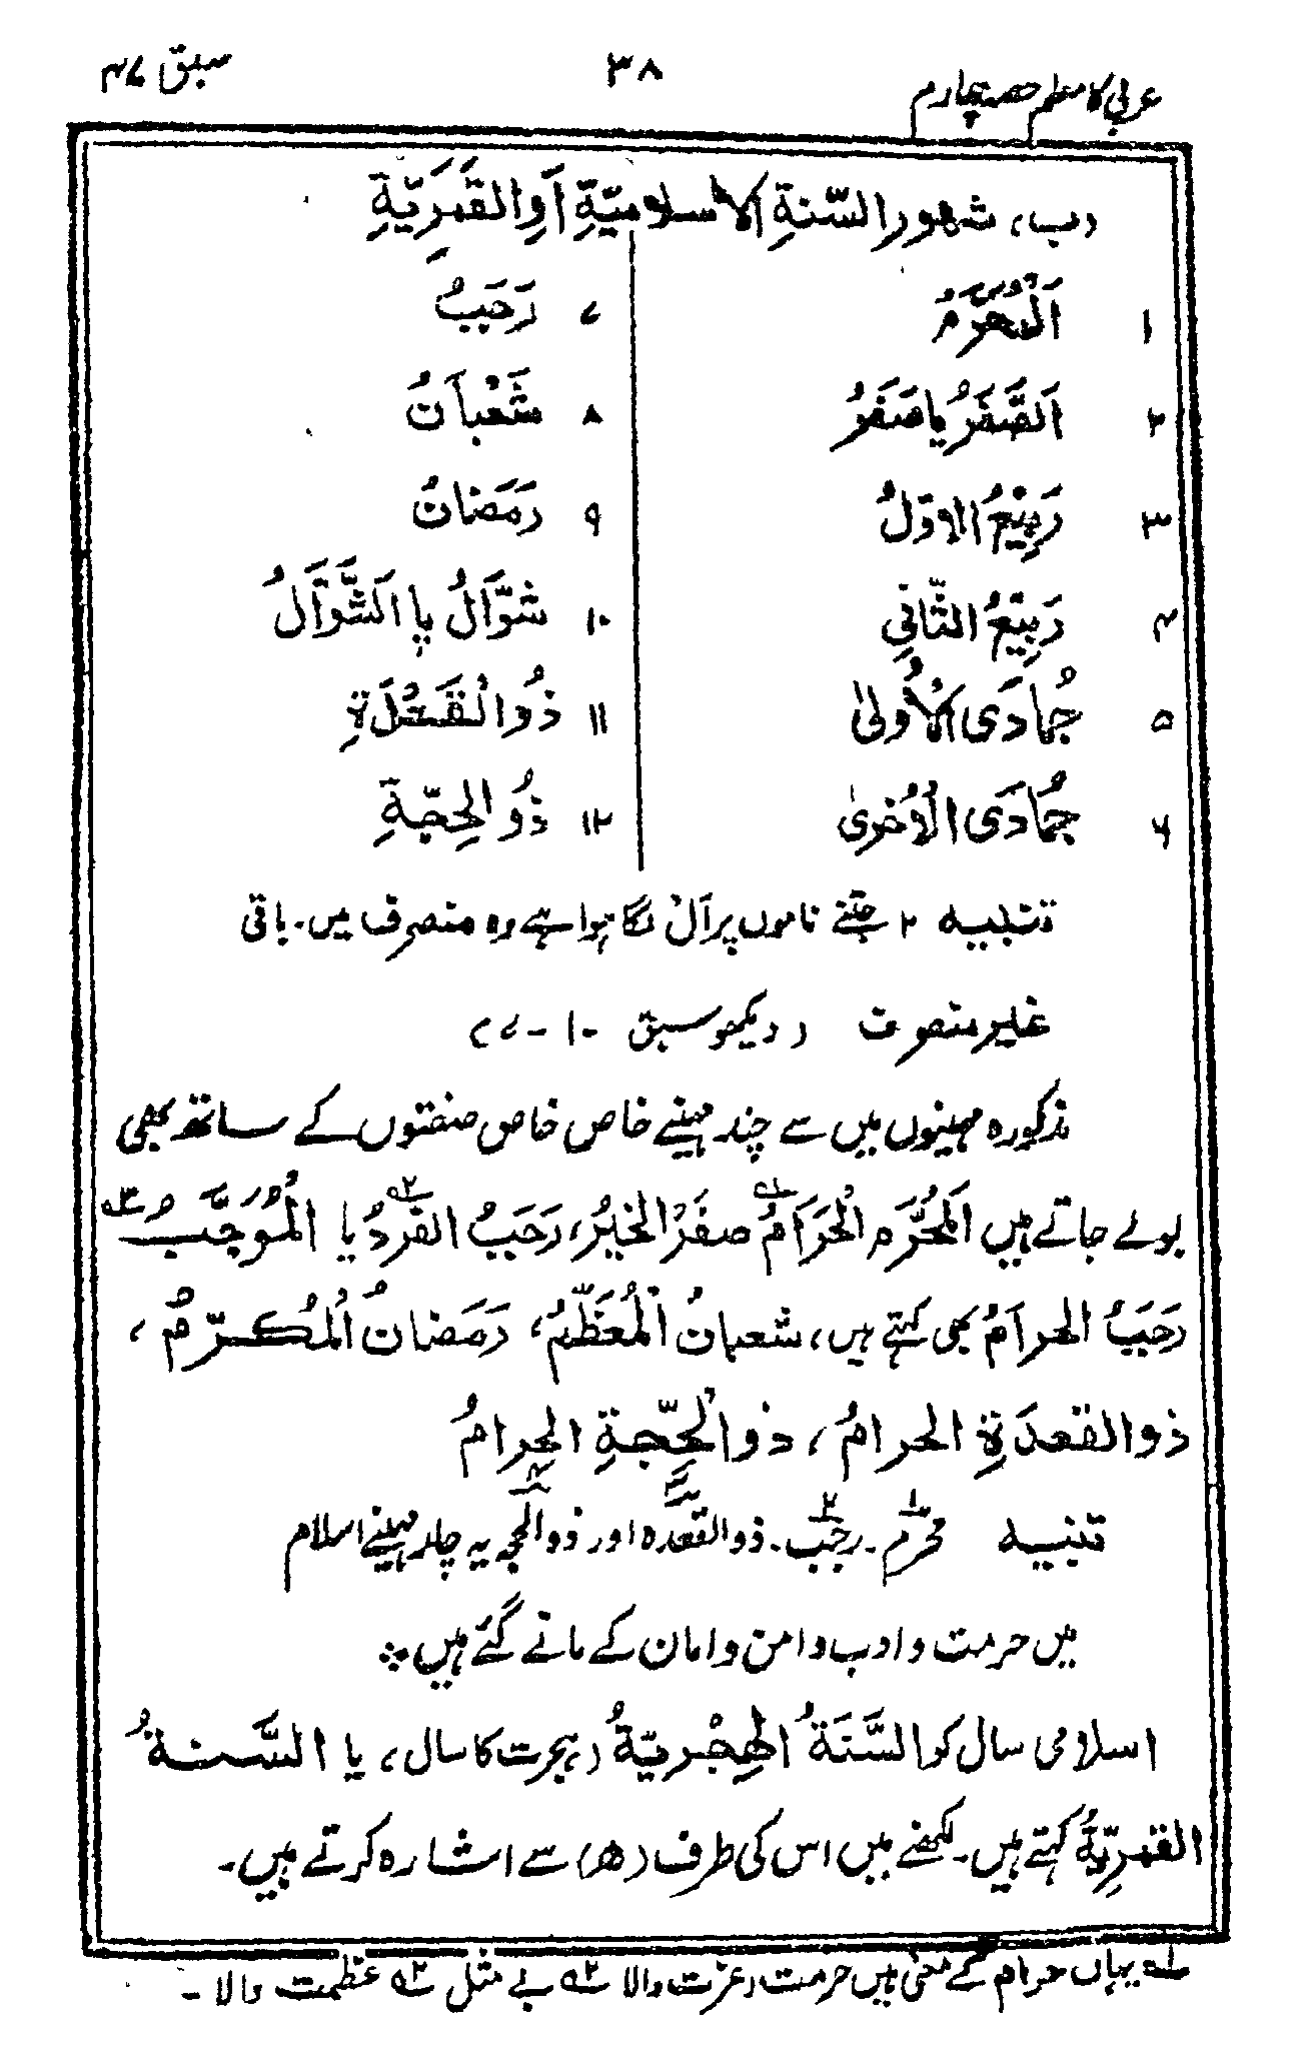 عربی کا معلم حصہ چہارم
۳۸
سبق ۴۷
(ب) شہور السّنۃِ الاسلامیّۃِ اَوِ القَمَرِیَّۃِ
۱ اَلْمُحَرَّمُ
۲ اَلصَّفَرُ یا صَفَرُ
۳ رَبِیْعُ الاوّلُ
۴ رَبِیْعُ الثَّانِی
۵ جُمَادَی الْاُولیٰ
۶ جُمَادَی الْاُخْریٰ
۷ رَجَبُ
۸ شَعْبَانُ
۹ رَمَضانُ
۱۰ شَوَّالُ یا اَلشَّوَّالُ
۱۱ ذُو الْقَعْدَۃِ
۱۲ ذُو الحِجّۃِ
تنبیہ ۲ جتنے ناموں پر اَلْ لگا ہوا ہے وہ منصرف ہیں۔ باقی
غیر منصرف (دیکھو سبق ۱۰-۷)
مذکورہ مہینوں میں سے چند مہینے خاص خاص صفتوں کے ساتھ بھی
بولے جاتے ہیں اَلْمُحَرَّم الْحَرَامُ۱ صَفَرُ الْخَیْرُ، رَجَبُ الفَرْدُ۲ یا الْمُرَجَّبُ۳
رَجَبُ الحرامُ بھی کہتے ہیں، شعبانُ الْمُعَظَّمُ، رَمَضانُ الْمُکرّمُ،
ذوالقعدَۃِ الحرامُ، ذوالْحِجّۃِ الحرامُ
تنبیہ محرّم۱۔ رجب۲۔ ذوالقعدہ۳ اور ذوالحجہ۴ یہ چار مہینے اسلام
میں حرمت و ادب و امن و امان کے مانے گئے ہیں
اسلامی سال کو السَّنَۃُ الْھِجْریّۃُ (ہجرت کا سال) یا السَّنۃُ
القمرِیّۃُ کہتے ہیں۔ لکھنے میں اس کی طرف (ھ) سے اشارہ کرتے ہیں۔
۱ یہاں حرام کے معنی ہیں حرمت و عزت والا ۲ بے مثل ۳ عظمت والا۔